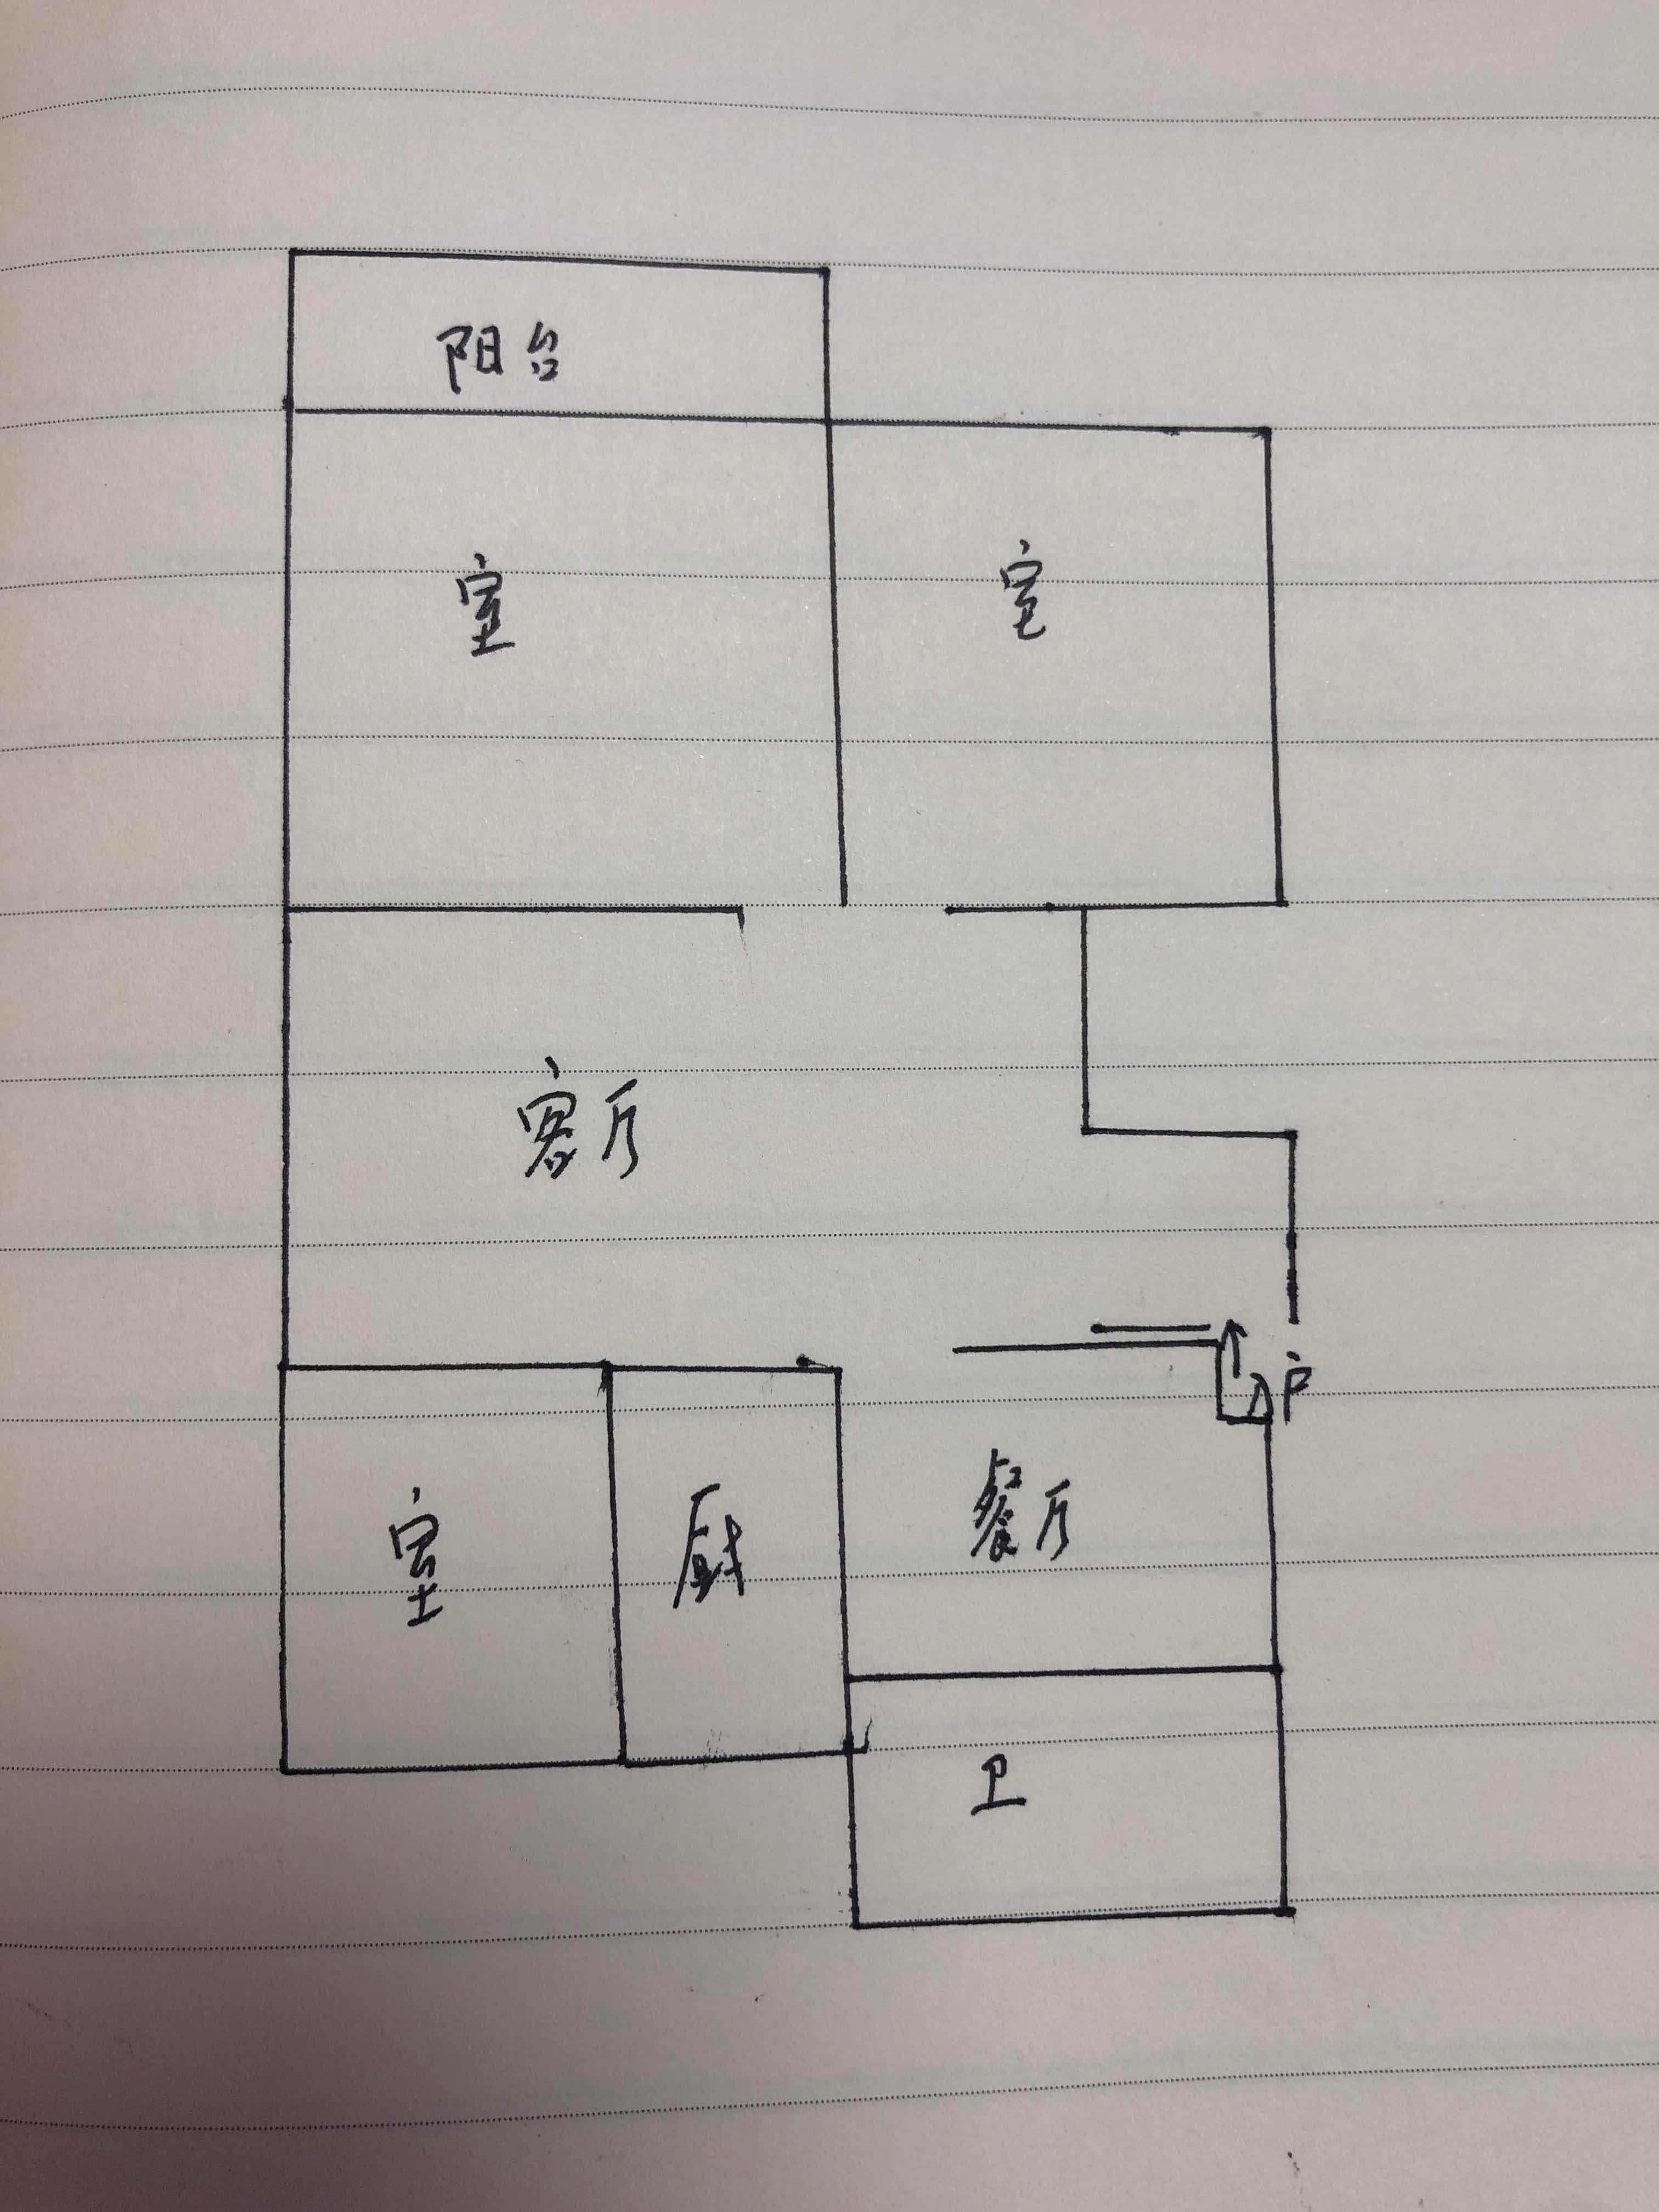 阳台
室
室
客厅
入户
餐厅
室
厨
卫